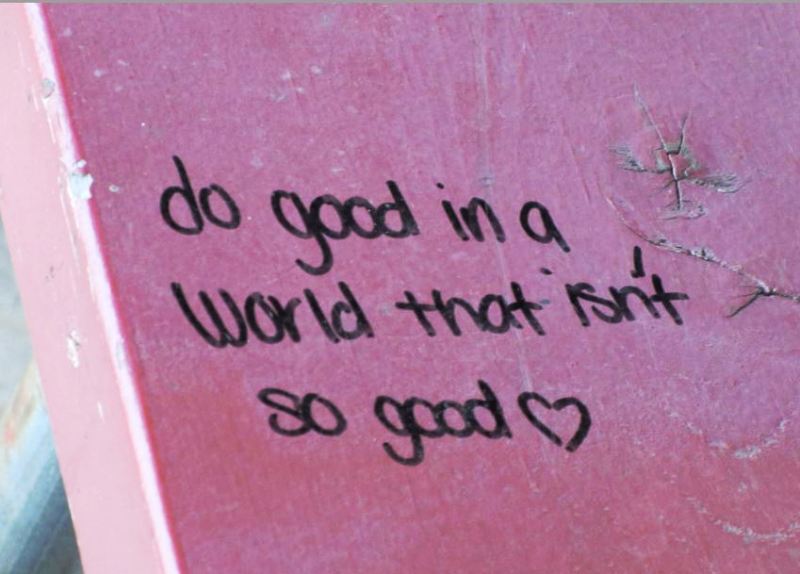 do good in a
world that isn't
so good ♡